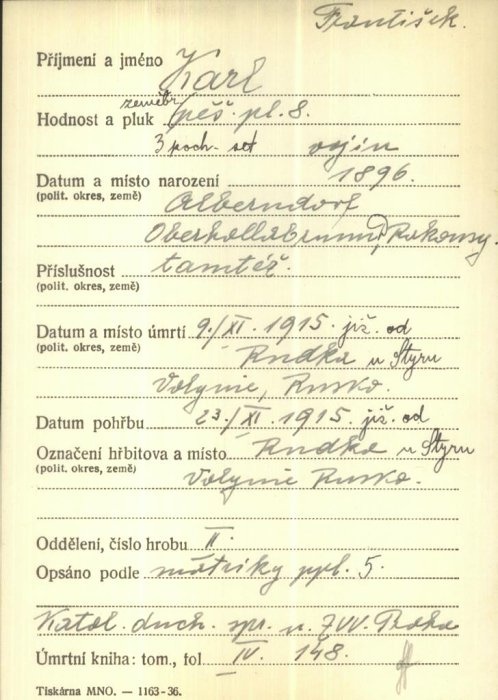 František.
Příjmení a jméno Karl
zeměbr.
Hodnost a pluk pěš. pl. 8.
3 poch. set vojín
Datum a místo narození 1896.
(polit. okres, země) Alberndorf
Oberhollabrunn, Rakousy.
Příslušnost tamtéž.
(polit. okres, země)
Datum a místo úmrtí 9./XI. 1915. již. od
(polit. okres, země) Rudka u Styru
Volynie, Rusko.
Datum pohřbu 23./XI. 1915. již. od
Označení hřbitova a místo Rudka u Styru
(polit. okres, země) Volynie Rusko.
Oddělení, číslo hrobu II.
Opsáno podle matriky ppl. 5.
Katol. duch. spr. u ZVV. Praha
Úmrtní kniha: tom., fol IV. 148.
Tiskárna MNO. — 1163-36.